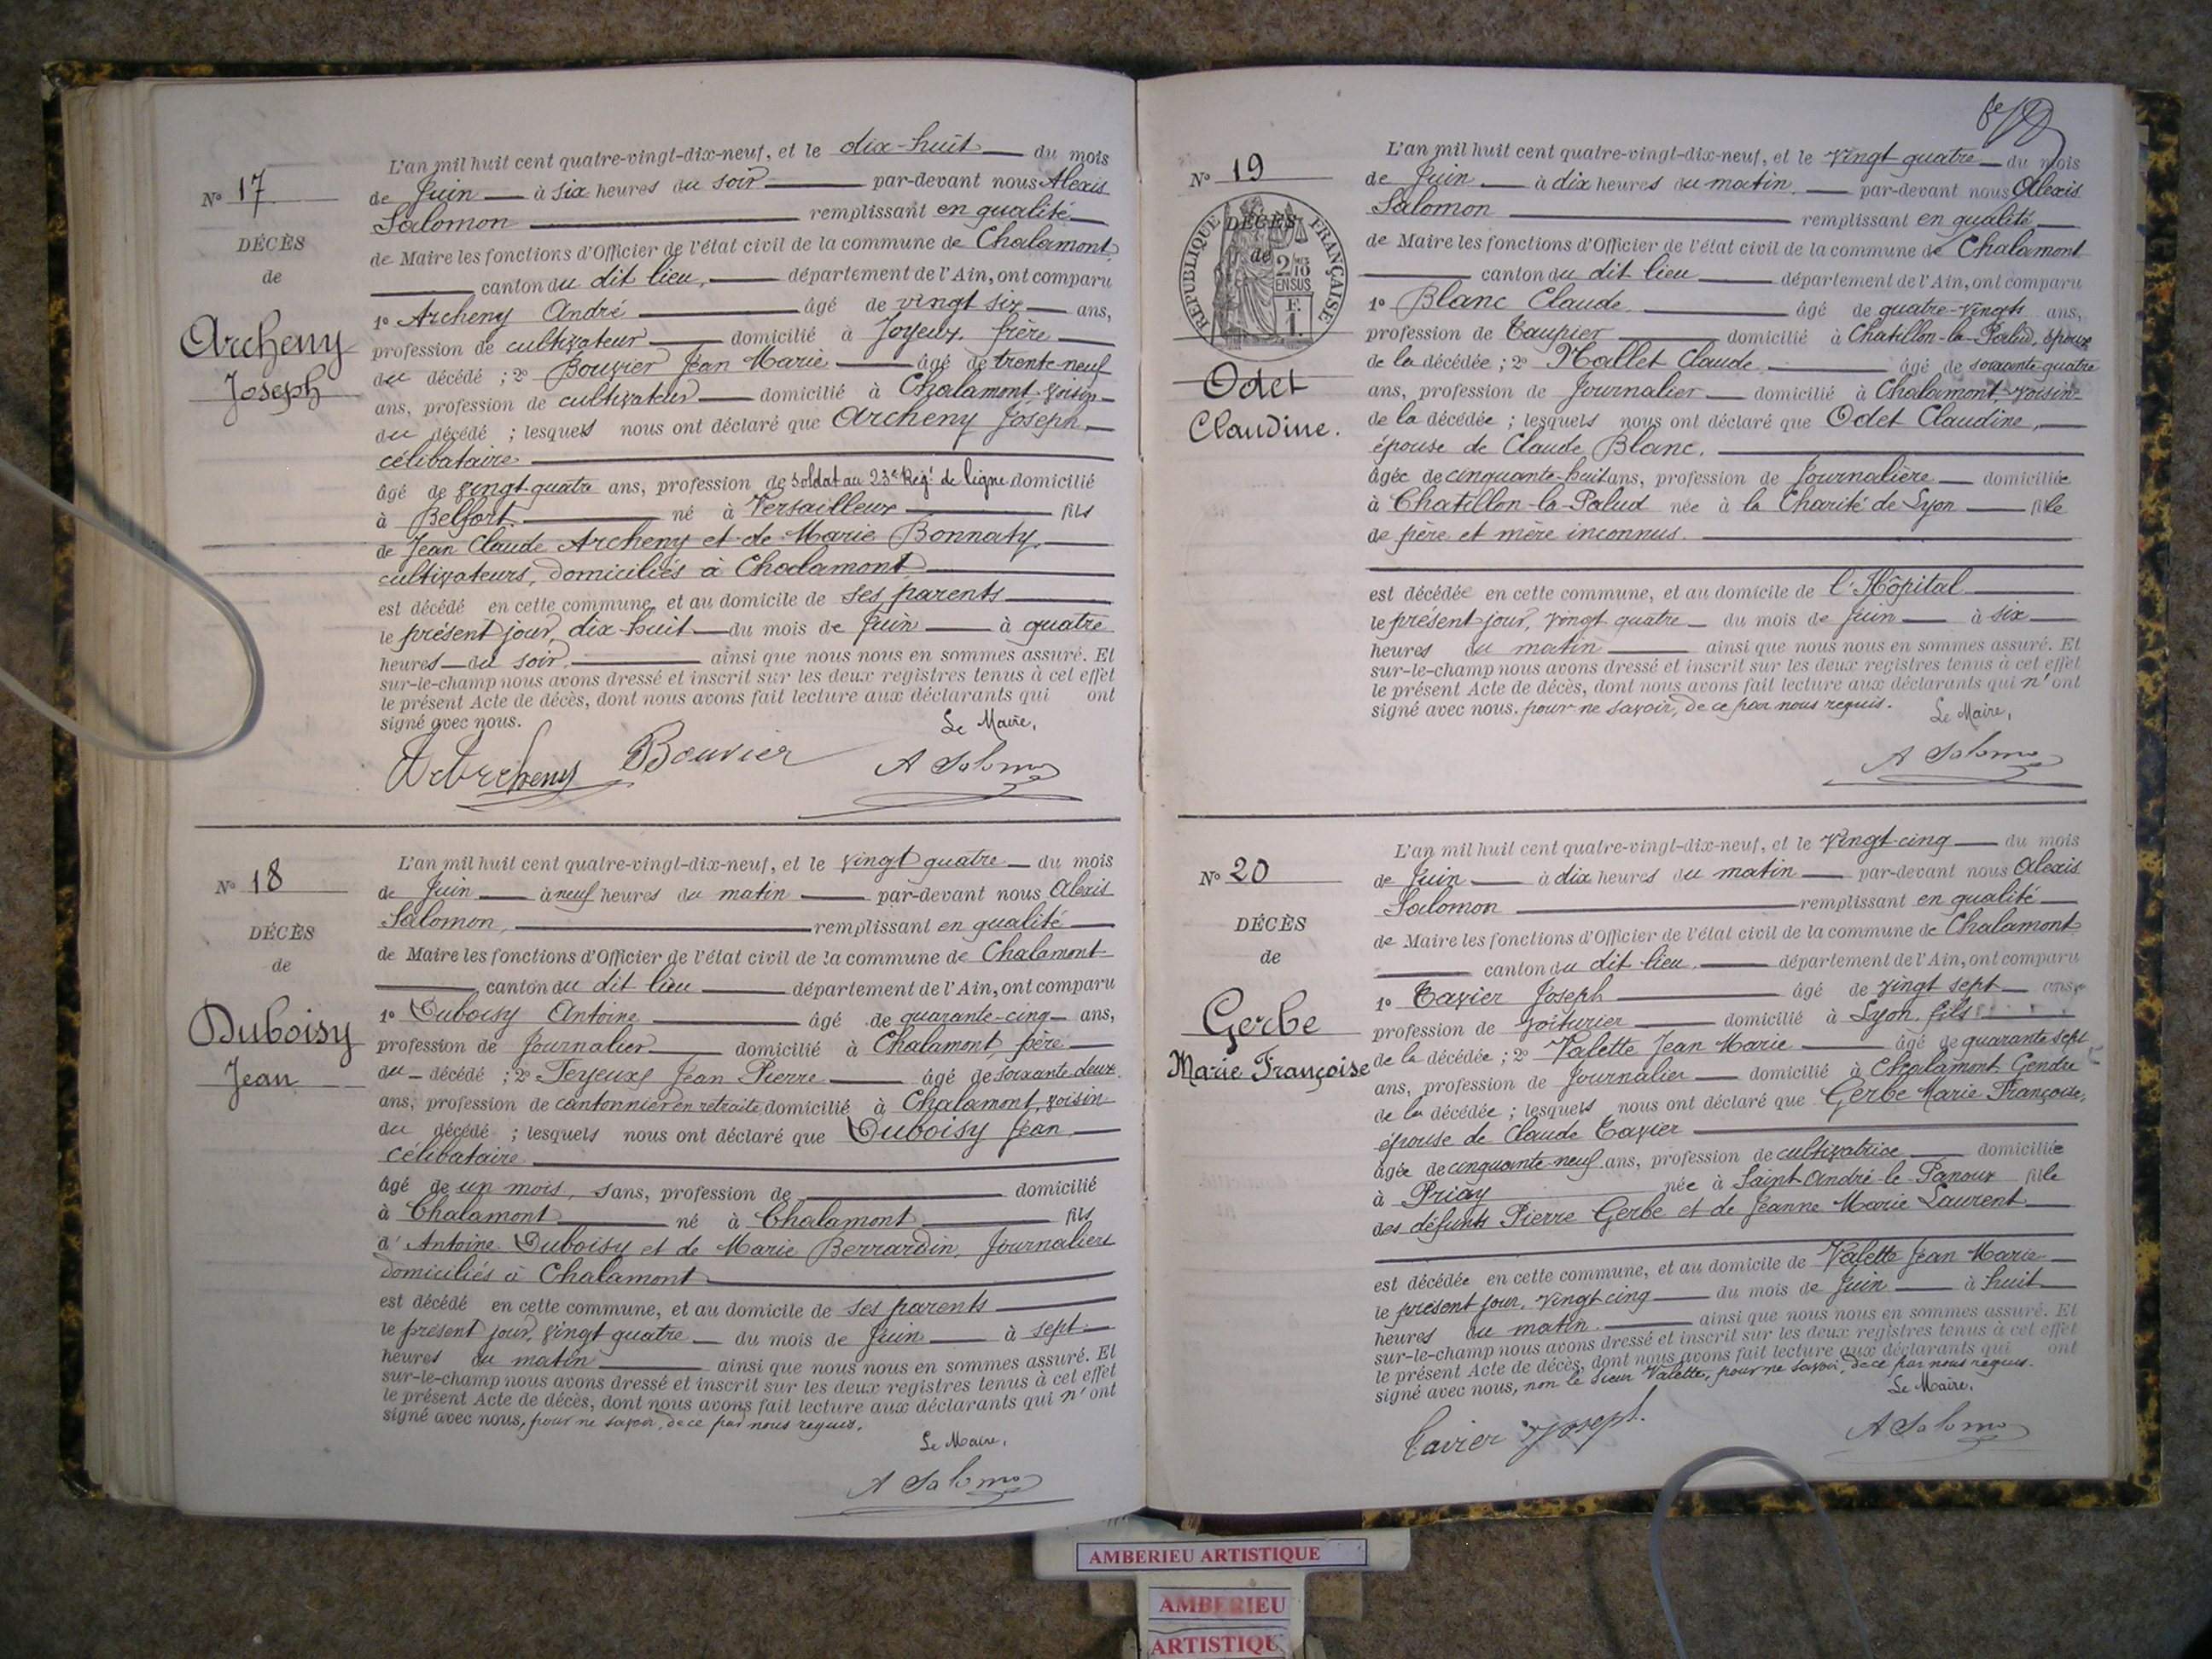 L'an mil huit cent quatre-vingt-dix-neuf, et le dix-huit du mois
de Juin à six heures du soir par-devant nous Alexis
Salomon remplissant en qualité
de Maire les fonctions d'Officier de l'état civil de la commune de Chalamont
canton du dit lieu, département de l'Ain, ont comparu
1º Archeny André âgé de vingt six ans,
profession de cultivateur domicilié à Joyeux, frère
du décédé ; 2º Bouvier Jean Marie âgé de trente neuf
ans, profession de cultivateur domicilié à Chalamont, voisin
du décédé ; lesquels nous ont déclaré que Archeny Joseph,
célibataire
âgé de vingt quatre ans, profession de Soldat au 23e Régt de ligne domicilié
à Belfort né à Versailleux fils
de Jean Claude Archeny et de Marie Bonnaty,
cultivateurs, domiciliés à Chalamont
est décédé en cette commune, et au domicile de ses parents
le présent jour, dix-huit du mois de Juin à quatre
heures du soir, ainsi que nous nous en sommes assuré. Et
sur-le-champ nous avons dressé et inscrit sur les deux registres tenus à cet effet
le présent Acte de décès, dont nous avons fait lecture aux déclarants qui ont
signé avec nous. Le Maire,
Archeny Bouvier A Salomon
Nº 17
DÉCÈS
de
Archeny
Joseph
L'an mil huit cent quatre-vingt-dix-neuf, et le vingt quatre du mois
de Juin à neuf heures du matin par-devant nous Alexis
Salomon, remplissant en qualité
de Maire les fonctions d'Officier de l'état civil de la commune de Chalamont
canton du dit lieu département de l'Ain, ont comparu
1º Duboisy Antoine âgé de quarante-cinq ans,
profession de Journalier domicilié à Chalamont, père
du décédé ; 2º Teyeux Jean Pierre âgé de soixante deux
ans, profession de cantonnier en retraite domicilié à Chalamont, voisin
du décédé ; lesquels nous ont déclaré que Duboisy Jean
célibataire
âgé de un mois, sans, profession de domicilié
à Chalamont né à Chalamont fils
d'Antoine Duboisy et de Marie Berrardin, Journaliers
domiciliés à Chalamont
est décédé en cette commune, et au domicile de ses parents
le présent jour, vingt quatre du mois de Juin à sept
heures du matin ainsi que nous nous en sommes assuré. Et
sur-le-champ nous avons dressé et inscrit sur les deux registres tenus à cet effet
le présent Acte de décès, dont nous avons fait lecture aux déclarants qui n'ont
signé avec nous, pour ne savoir, de ce par nous requis.
Le Maire,
A Salomon
Nº 18
DÉCÈS
de
Duboisy
Jean
L'an mil huit cent quatre-vingt-dix-neuf, et le vingt quatre du mois
de Juin à dix heures du matin par-devant nous Alexis
Salomon remplissant en qualité
de Maire les fonctions d'Officier de l'état civil de la commune de Chalamont
canton du dit lieu département de l'Ain, ont comparu
1º Blanc Claude âgé de quatre-vingts ans,
profession de Taupier domicilié à Chatillon-la-Palud, époux
de la décédée ; 2º Mallet Claude âgé de soixante-quatre
ans, profession de Journalier domicilié à Chalamont, voisin
de la décédée ; lesquels nous ont déclaré que Odet Claudine,
épouse de Claude Blanc,
âgée de cinquante-huit ans, profession de Journalière domiciliée
à Chatillon-la-Palud née à la Charité de Lyon fille
de père et mère inconnus.
est décédée en cette commune, et au domicile de l'Hôpital
le présent jour, vingt quatre du mois de Juin à six
heures du matin ainsi que nous nous en sommes assuré. Et
sur-le-champ nous avons dressé et inscrit sur les deux registres tenus à cet effet
le présent Acte de décès, dont nous avons fait lecture aux déclarants qui n'ont
signé avec nous. pour ne savoir, de ce par nous requis. Le Maire,
A Salomon
Nº 19
RÉPUBLIQUE FRANÇAISE
DÉCÈS
de
2/10
EN SUS
F.
1.
Odet
Claudine.
L'an mil huit cent quatre-vingt-dix-neuf, et le vingt-cinq du mois
de Juin à dix heures du matin par-devant nous Alexis
Salomon remplissant en qualité
de Maire les fonctions d'Officier de l'état civil de la commune de Chalamont
canton du dit lieu, département de l'Ain, ont comparu
1º Tavier Joseph âgé de vingt sept ans,
profession de voiturier domicilié à Lyon, fils
de la décédée ; 2º Valette Jean Marie âgé de quarante sept
ans, profession de Journalier domicilié à Chalamont Gendre
de la décédée ; lesquels nous ont déclaré que Gerbe Marie Françoise,
épouse de Claude Tavier
âgée de cinquante neuf ans, profession de cultivatrice domiciliée
à Priay née à Saint André-le-Panoux fille
des défunts Pierre Gerbe et de Jeanne Marie Laurent
est décédée en cette commune, et au domicile de Valette Jean Marie
le présent jour, vingt cinq du mois de Juin à huit
heures du matin ainsi que nous nous en sommes assuré. Et
sur-le-champ nous avons dressé et inscrit sur les deux registres tenus à cet effet
le présent Acte de décès, dont nous avons fait lecture aux déclarants qui ont
signé avec nous, non le sieur Valette, pour ne savoir, de ce par nous requis.
Le Maire,
Tavier Joseph A Salomon
Nº 20
DÉCÈS
de
Gerbe
Marie Françoise
AMBERIEU ARTISTIQUE
AMBERIEU
ARTISTIQU